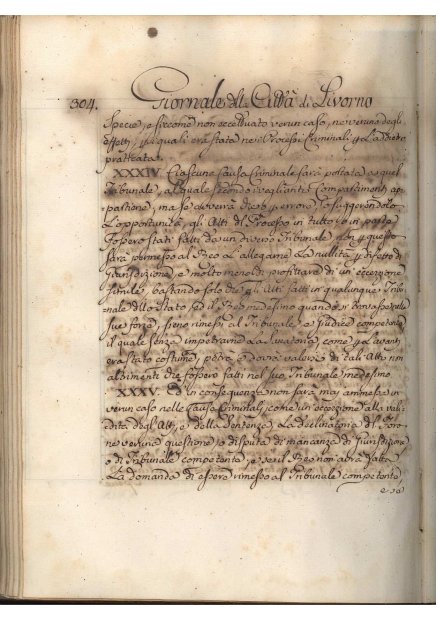 304. Giornale della Città di Livorno
Specie, e siccome non eccettuato verun caso, ne veruno degli
effetti, quali era stata nei Processi Criminali La dietro
pratticata.
XXXIV. Ciascuna Causa Criminale sarà portata a quel
Tribunale, al quale secondo i veglianti Compartimenti ap-
partiene, ma se o verrà d'uso, o errore, o suggerendolo
L'opportunità, gli Atti del Processo in tutto, o in parte
fossero stati fatti da un diverso Tribunale, non questo
sarà permesso al Reo L'allegarne La nullità difetto di
Giurisdizione, e molto meno di profittare di un eccezione
simile, bastando solo che gli Atti fatti in qualunque Tribu-
nale dello Stato, ed il Reo medesimo quando
sue forze, sieno rimessi al Tribunale, e Giudice competente
il quale senza impetrarne La come Lavanti
era stato costume, potrà, e dovrà valersi di tali Atti non
altrimenti che fossero fatti nel suo Tribunale medesimo.
XXXV. Ed in conseguenza non sarà mai ammessa in
verun caso nelle Cause Criminali, come un eccezione alla vali-
dità degli Atti, e della Sentenza, La declinatoria del Foro
ne veruna questione, o disputa di mancanza di Giurisdizione
o di Tribunale competente, e se il Reo non avrà fatta
La domanda di essere rimesso al Tribunale competente